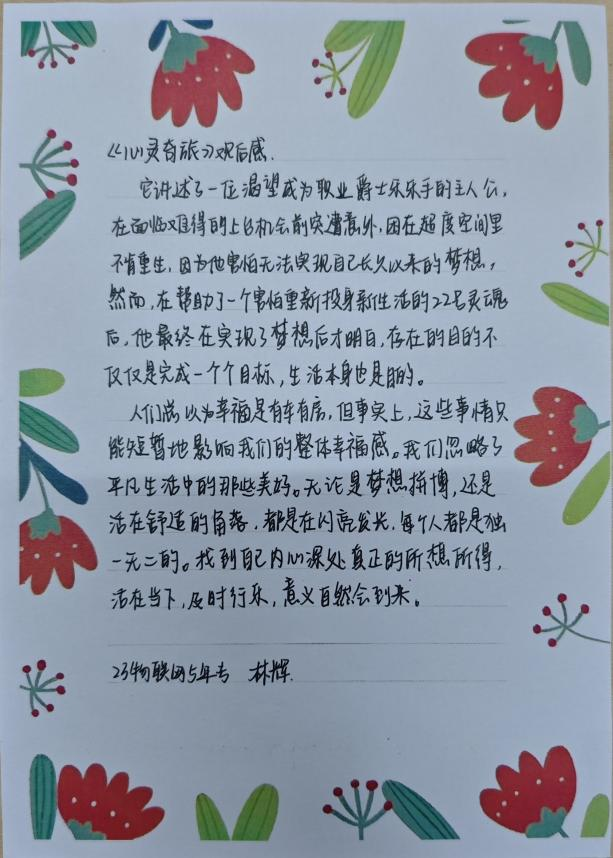 《心灵奇旅》观后感.
它讲述了一位渴望成为职业爵士乐乐手的主人公,
在面临难得的上台机会前突遭意外,困在超度空间里
不肯重生,因为他害怕无法实现自己长久以来的梦想,
然而,在帮助了一个害怕重新投身新生活的22号灵魂
后,他最终在实现了梦想后才明白,存在的目的不
仅仅是完成一个个目标,生活本身也是目的。
人们总以为幸福是有车有房,但事实上,这些事情只
能短暂地影响我们的整体幸福感。我们忽略了
平凡生活中的那些美好。无论是梦想拼博,还是
活在舒适的角落,都是在闪亮发光,每个人都是独
一无二的。找到自己内心深处真正的所想所得,
活在当下,及时行乐,意义自然会到来。
23物联网5年专 林辉.